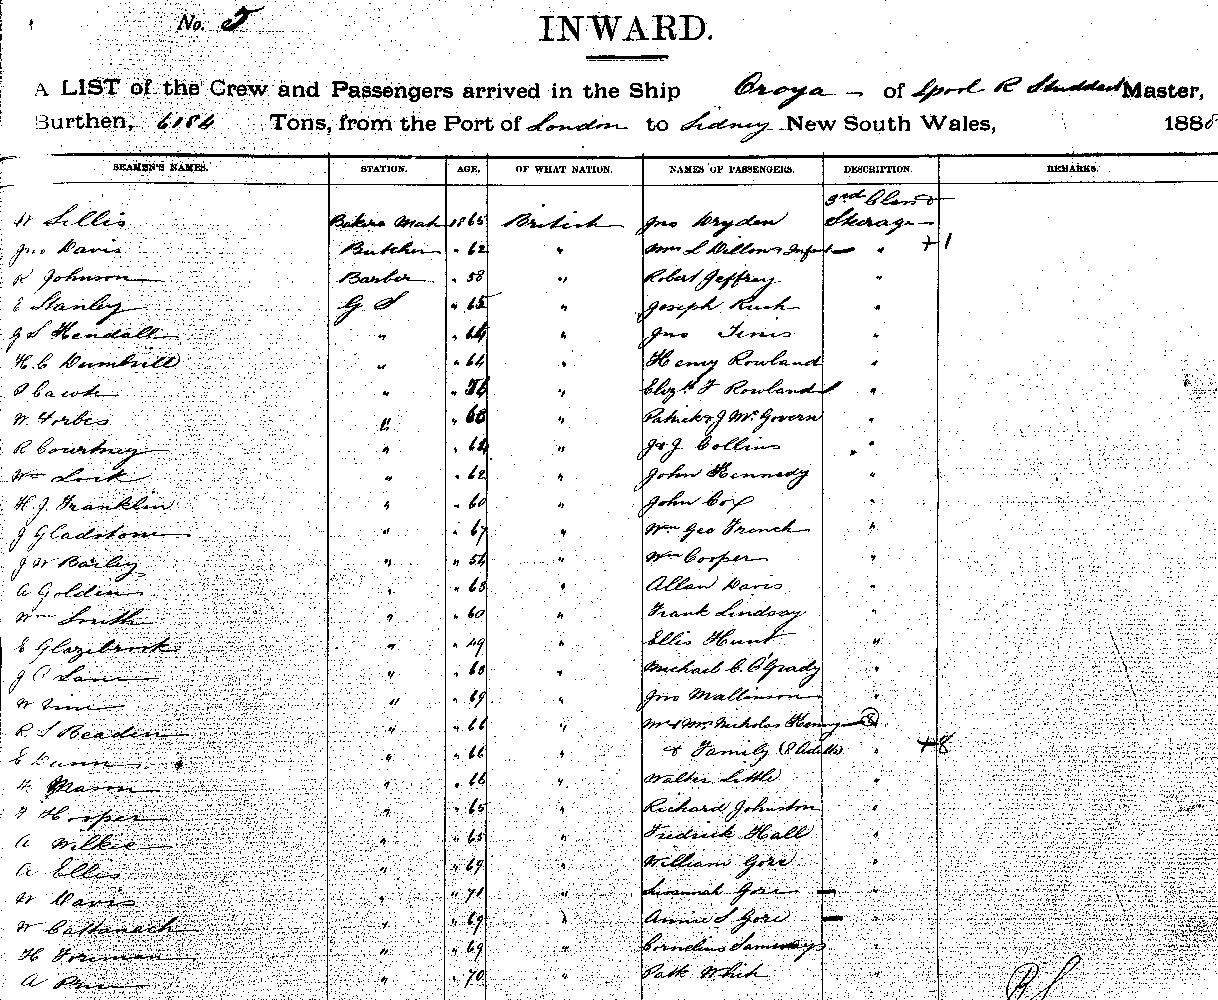 No. 5
INWARD.
A LIST of the Crew and Passengers arrived in the Ship Oroya - of Lpool R Studdert Master,
Burthen, 6184 Tons, from the Port of London to Sidney New South Wales, 1888
SEAMEN'S NAMES. STATION. AGE. OF WHAT NATION. NAMES OF PASSENGERS. DESCRIPTION. REMARKS.
3rd Class &
W Lillis Bakers Mate 1865 British Jno Dryden Steerage
Jno Davis Butcher " 62 " Mrs L Dillon & Infant " +1
R Johnson Barber " 58 " Robert Jeffrey "
E Stanley G S " 65 " Joseph Rush "
J S Kendall " " 64 " Jno Tinis "
H. C Dumbrill " " 64 " Henry Rowland "
" " 56 " Elizth F Rowland "
W Forbes " " 68 " Patrick & J McGovern "
R Courtney " " 62 " J & J Collins "
Wm Lock " " 62 " John Kennedy "
H J Franklin " " 60 " John Cox "
J Gladstone " " 67 " Wm Geo French "
J W Barley " " 54 " Wm Cooper "
A Golden " " 63 " Allan Davis "
Wm Smith " " 60 " Frank Lindsay "
E Glazebrook " " 49 " Ellis Hunt "
J C Lane " " 68 " Michael C O'Grady "
W " " 69 " Jno Mallinson "
R S Beaden " " 66 " Mr & Mrs Nicholas Henry 8
E Dunn " " 66 " & Family (8 Adults) " +8
H Mason " " 66 " Walter Little "
F Hooper " " 65 " Richard Johnston "
A Wilkie " " 65 " Fredrick Hall "
A Ellis " " 69 " William Gore "
W Davis " " 71 " Susannah Gore - "
W Cattanach " " 69 " Annie S Gore - "
H Foreman " " 69 " Cornelius Samways "
A " " 70 " Patk White "